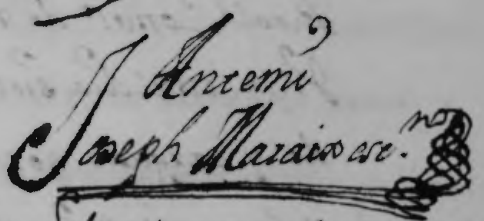 Antemi
Joseph Maraix esc.no